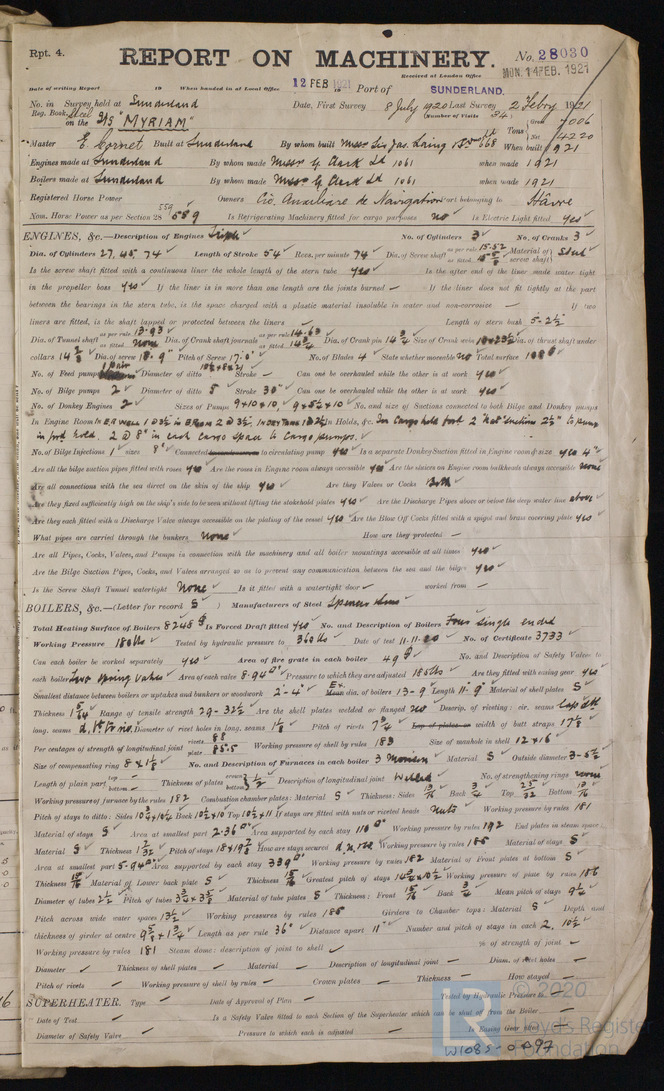 Rpt. 4.
REPORT ON MACHINERY.
No. 28030
MON. 14 FEB. 1921
Received at London Office
Date of writing Report 19 When handed in at Local Office 12 FEB 1921 Port of SUNDERLAND.
No. in Survey held at Sunderland Date, First Survey 8 July 1920 Last Survey 2 Febry 1921
Reg. Book. (Number of Visits 34)
on the Steel S/S "MYRIAM" Tons { Gross 7006 Net 4220
Master E. Cornet Built at Sunderland By whom built Messrs Sir Jas. Laing When built 1921
Engines made at Sunderland By whom made Messrs G. Clark Ld 1061 when made 1921
Boilers made at Sunderland By whom made Messrs G. Clark Ld 1061 when made 1921
Registered Horse Power Owners Cie. Auxiliaire de Navigation Port belonging to Hâvre
Nom. Horse Power as per Section 28 559 589 Is Refrigerating Machinery fitted for cargo purposes no Is Electric Light fitted yes
ENGINES, &c.—Description of Engines Triple No. of Cylinders 3 No. of Cranks 3
Dia. of Cylinders 27. 45. 74 Length of Stroke 54 Revs. per minute 74 Dia. of Screw shaft as per rule 15.52 as fitted Material of screw shaft Steel
Is the screw shaft fitted with a continuous liner the whole length of the stern tube yes Is the after end of the liner made water tight
in the propeller boss yes If the liner is in more than one length are the joints burned — If the liner does not fit tightly at the part
between the bearings in the stern tube, is the space charged with a plastic material insoluble in water and non-corrosive — If two
liners are fitted, is the shaft lapped or protected between the liners — Length of stern bush 5-2½
Dia. of Tunnel shaft as per rule 13.93 as fitted None Dia. of Crank shaft journals as per rule 14.63 as fitted 14¾ Dia. of Crank pin 14¾ Size of Crank webs Dia. of thrust shaft under
collars 14⅞ Dia. of screw 18-9 Pitch of Screw 17-0 No. of Blades 4 State whether moveable no Total surface
No. of Feed pumps 1 pair Diameter of ditto Stroke — Can one be overhauled while the other is at work yes
No. of Bilge pumps 2 Diameter of ditto 5 Stroke 30 Can one be overhauled while the other is at work yes
No. of Donkey Engines 2 Sizes of Pumps 9×10×10, No. and size of Suctions connected to both Bilge and Donkey pumps
In Engine Room In E.R. Well In Holds, &c. In Cargo hold fore 2 suction 2½" to pump
in ford hold. 2 @ 8" in each cargo space to Cargo pumps.
No. of Bilge Injections 1 sizes 8" Connected to circulating pump yes Is a separate Donkey Suction fitted in Engine room & size yes 4"
Are all the bilge suction pipes fitted with roses yes Are the roses in Engine room always accessible yes Are the sluices on Engine room bulkheads always accessible none
Are all connections with the sea direct on the skin of the ship yes Are they Valves or Cocks Both
Are they fixed sufficiently high on the ship's side to be seen without lifting the stokehold plates yes Are the Discharge Pipes above or below the deep water line above
Are they each fitted with a Discharge Valve always accessible on the plating of the vessel yes Are the Blow Off Cocks fitted with a spigot and brass covering plate yes
What pipes are carried through the bunkers none How are they protected —
Are all Pipes, Cocks, Valves, and Pumps in connection with the machinery and all boiler mountings accessible at all times yes
Are the Bilge Suction Pipes, Cocks, and Valves arranged so as to prevent any communication between the sea and the bilges yes
Is the Screw Shaft Tunnel watertight None Is it fitted with a watertight door — worked from —
BOILERS, &c.—(Letter for record S) Manufacturers of Steel Spencer Sons
Total Heating Surface of Boilers 8248 Is Forced Draft fitted yes No. and Description of Boilers Four single ended
Working Pressure 180 lbs Tested by hydraulic pressure to 360 lbs Date of test 11-11-20 No. of Certificate 3733
Can each boiler be worked separately yes Area of fire grate in each boiler 49 No. and Description of Safety Valves to
each boiler Two spring valves Area of each valve 8.94 Pressure to which they are adjusted 185 lbs Are they fitted with easing gear yes
Smallest distance between boilers or uptakes and bunkers or woodwork 2'-4" Ex. dia. of boilers 13-9 Length 11-9 Material of shell plates S
Thickness Range of tensile strength 29-32½ Are the shell plates welded or flanged no Descrip. of riveting: cir. seams lap
long. seams Diameter of rivet holes in long. seams 1⅛ Pitch of rivets 7¾ Lap of plates or width of butt straps 17⅛
Per centages of strength of longitudinal joint rivets 88 plate 85.5 Working pressure of shell by rules 183 Size of manhole in shell 12×16
Size of compensating ring 8×1⅛ No. and Description of Furnaces in each boiler 3 Morison Material S Outside diameter 3-5½
Length of plain part top bottom Thickness of plates crown bottom ½ Description of longitudinal joint Welded No. of strengthening rings none
Working pressure of furnace by the rules 182 Combustion chamber plates: Material S Thickness: Sides Back ¾ Top 25/32 Bottom
Pitch of stays to ditto: Sides Back 10½×10 Top If stays are fitted with nuts or riveted heads nuts Working pressure by rules 181
Material of stays S Area at smallest part 2.36 Area supported by each stay 110 Working pressure by rules 192 End plates in steam space:
Material S Thickness Pitch of stays How are stays secured Working pressure by rules 185 Material of stays S
Area at smallest part 5.94 Area supported by each stay 339 Working pressure by rules 182 Material of Front plates at bottom S
Thickness Material of Lower back plate S Thickness Greatest pitch of stays Working pressure of plate by rules 186
Diameter of tubes 2½ Pitch of tubes Material of tube plates S Thickness: Front Back ¾ Mean pitch of stays 9¼
Pitch across wide water spaces 13½ Working pressures by rules 185 Girders to Chamber tops: Material S Depth and
thickness of girder at centre Length as per rule 36 Distance apart 11 Number and pitch of stays in each 2. 10½
Working pressure by rules 181 Steam dome: description of joint to shell — % of strength of joint —
Diameter — Thickness of shell plates — Material — Description of longitudinal joint — Diam. of rivet holes —
Pitch of rivets — Working pressure of shell by rules — Crown plates — Thickness — How stayed —
SUPERHEATER. Type — Date of Approval of Plan — Tested by Hydraulic Pressure to —
Date of Test — Is a Safety Valve fitted to each Section of the Superheater which can be shut off from the Boiler —
Diameter of Safety Valve — Pressure to which each is adjusted — Is Easing Gear
© 2020
Lloyd's Register
Foundation
W1085-0097